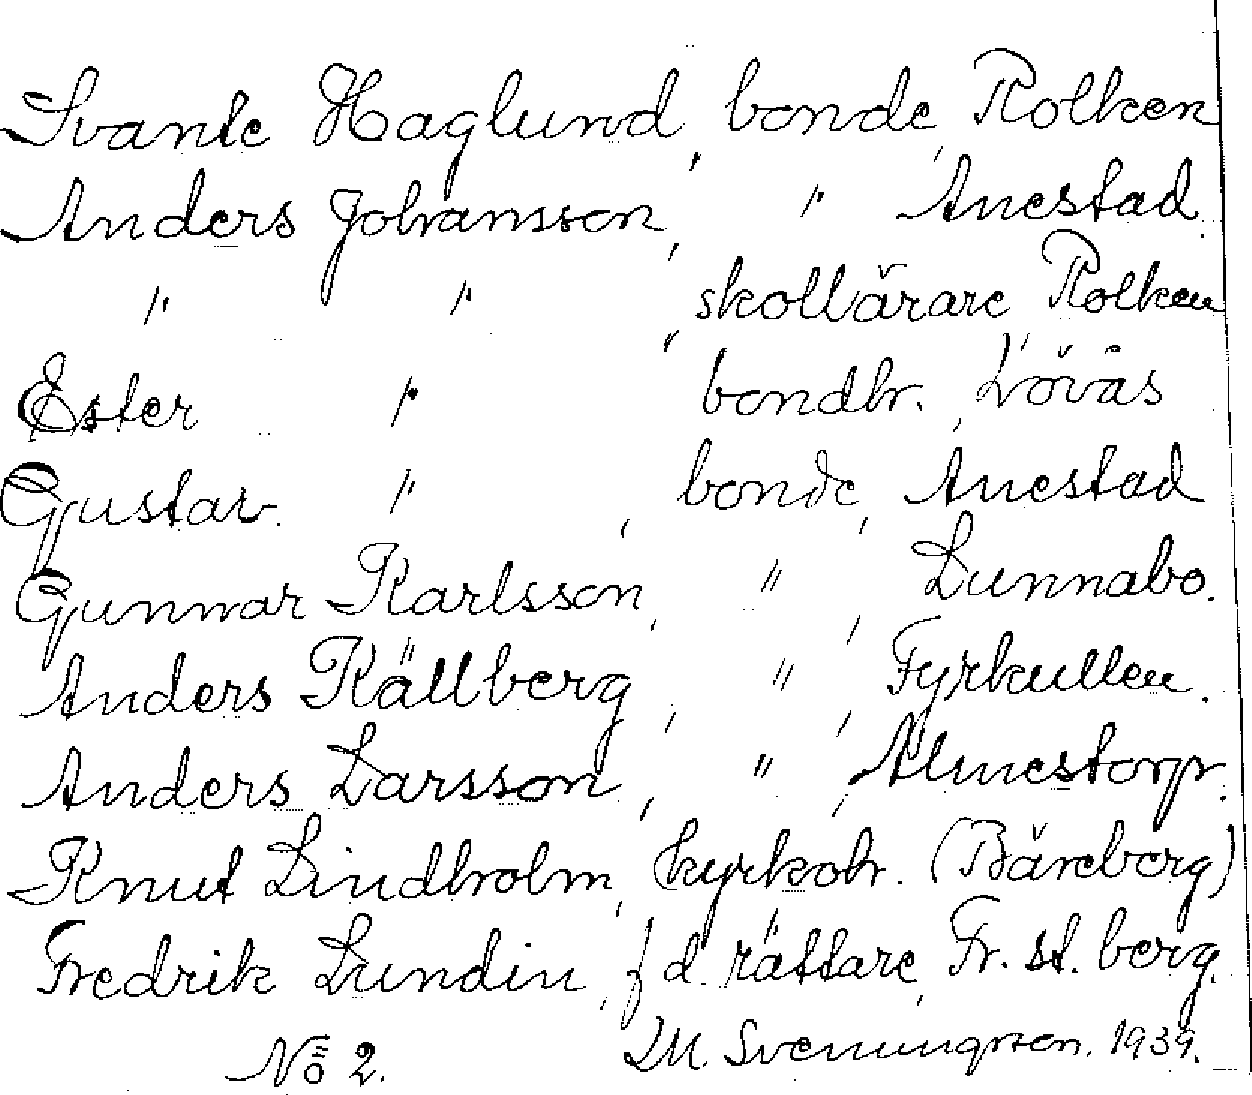 Svante Haglund, bonde, Rolken
Anders Johansson, " Anestad.
" " , skollärare, Rolken
Ester " bondhr. , Lövås
Gustav. " , bonde, Anestad
Gunnar Karlsson, " , Lunnabo.
Anders Källberg, " , Fyrkullen.
Anders Larsson, " , Almestorp.
Knut Lindholm, kyrkohr. (Bäreberg)
Fredrik Lundin, f d. rättare, Fr. st. berg.
No 2. LM. Svenungsson. 1939.